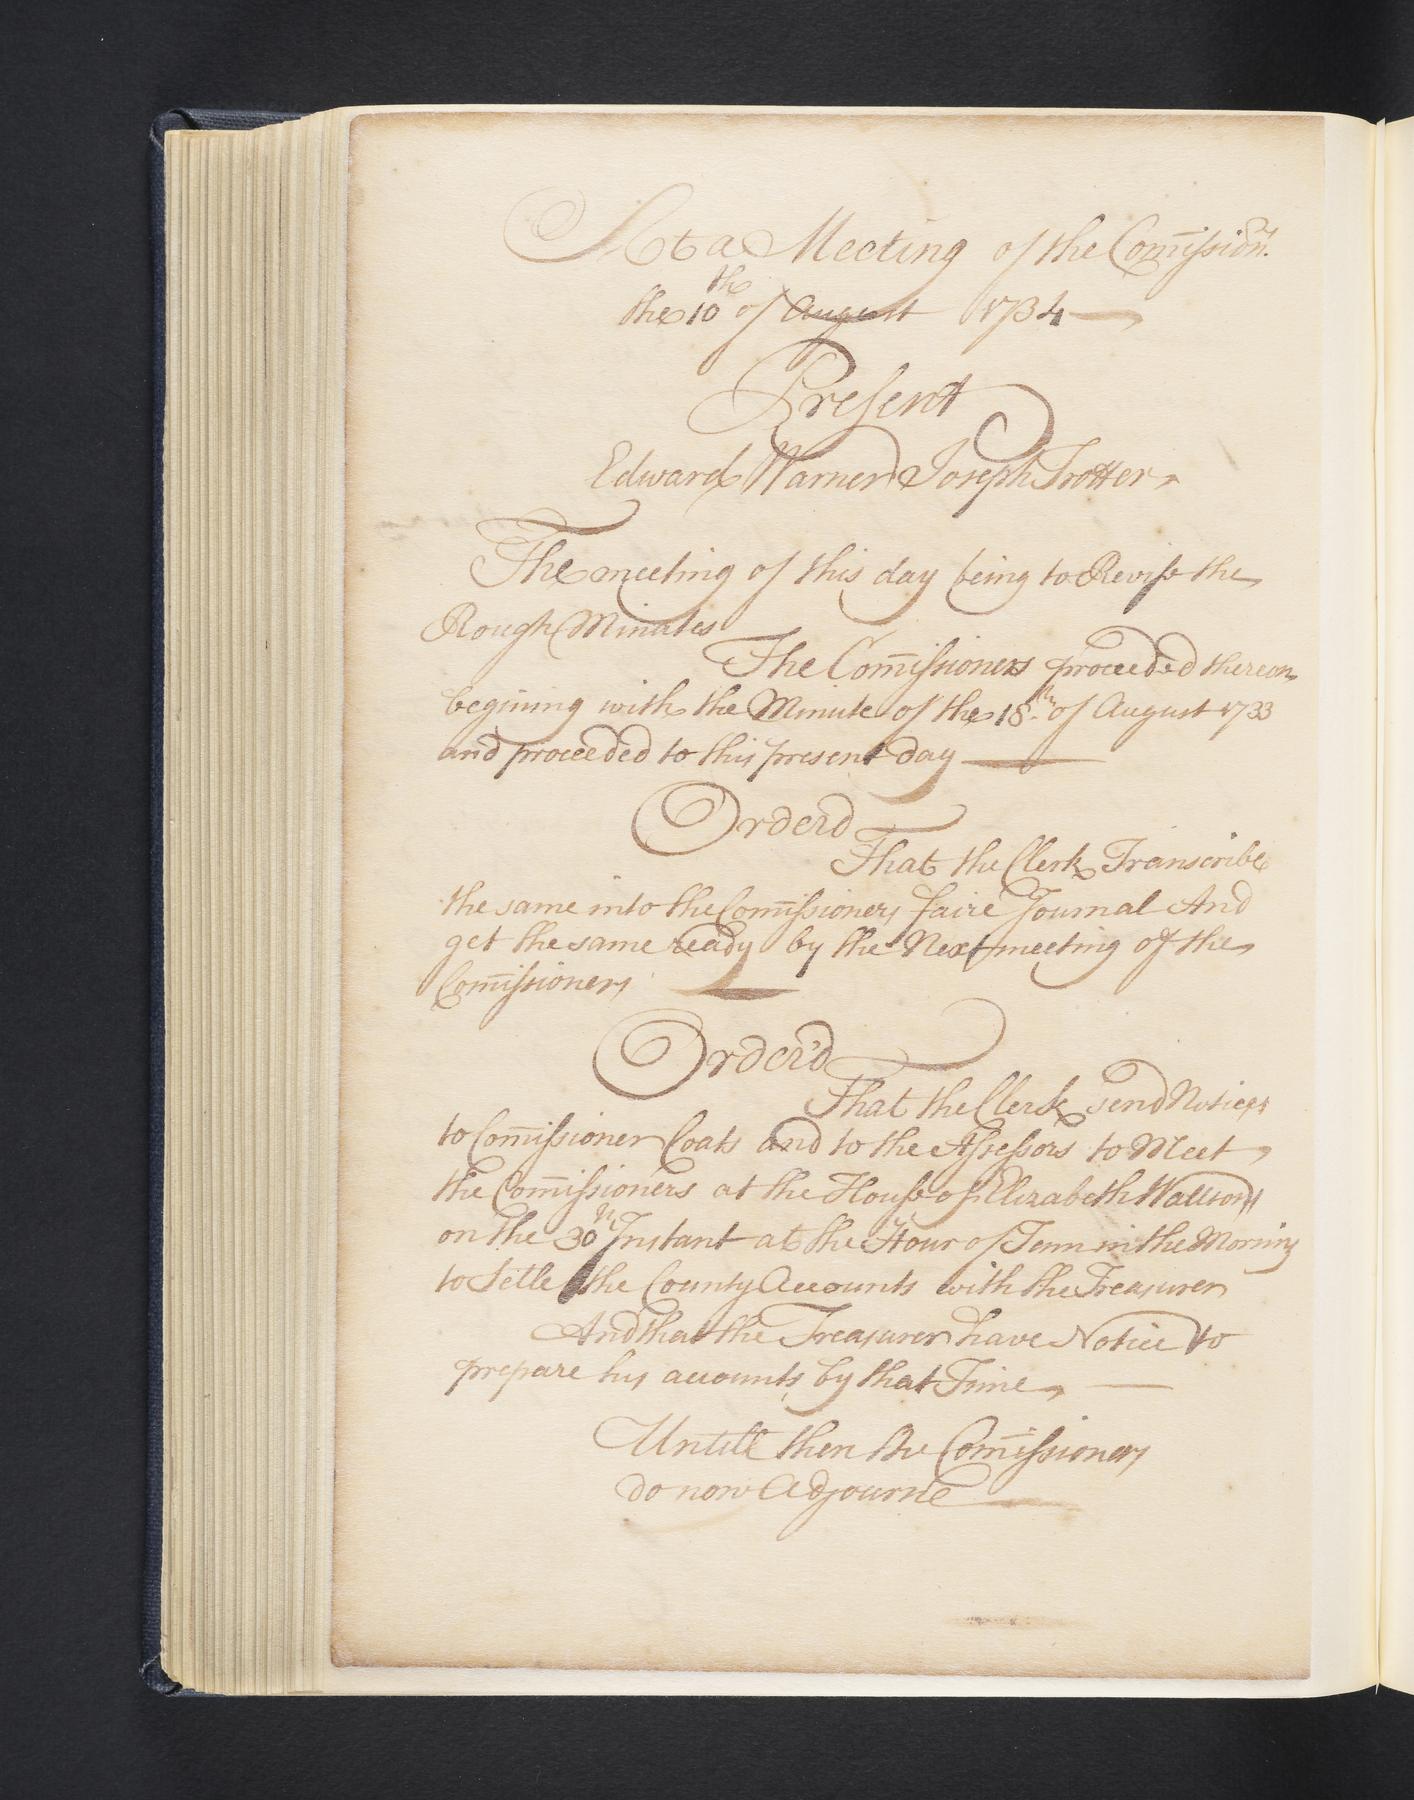 At a Meeting of the Com̄ission.rs
the 10th of August 1734
Present
Edward Warner Joseph Trotter
The meeting of this day being to Revise the
Rough Minutes
The Com̄issioners proceeded thereon
begining with the Minute of the 18th of August 1733
and proceeded to this present day
Orderd
That the Clerk Transcribe
the same into the Com̄issioners faire Journal And
get the same ready by the Next meeting of the
Com̄issioners
Order'd
That the Clerk send Notices
to Com̄issioner Coats and to the Assessors to Meet
the Com̄issioners at the House of Elizabeth Wattsons
on the 30th Instant at the Hour of Tenn in the Morning
to Setle the County Accounts with the Treasurer
And that the Treasurer have Notice to
prepare his accounts by that Time
Untill then the Com̄issioners
do now Adjourne